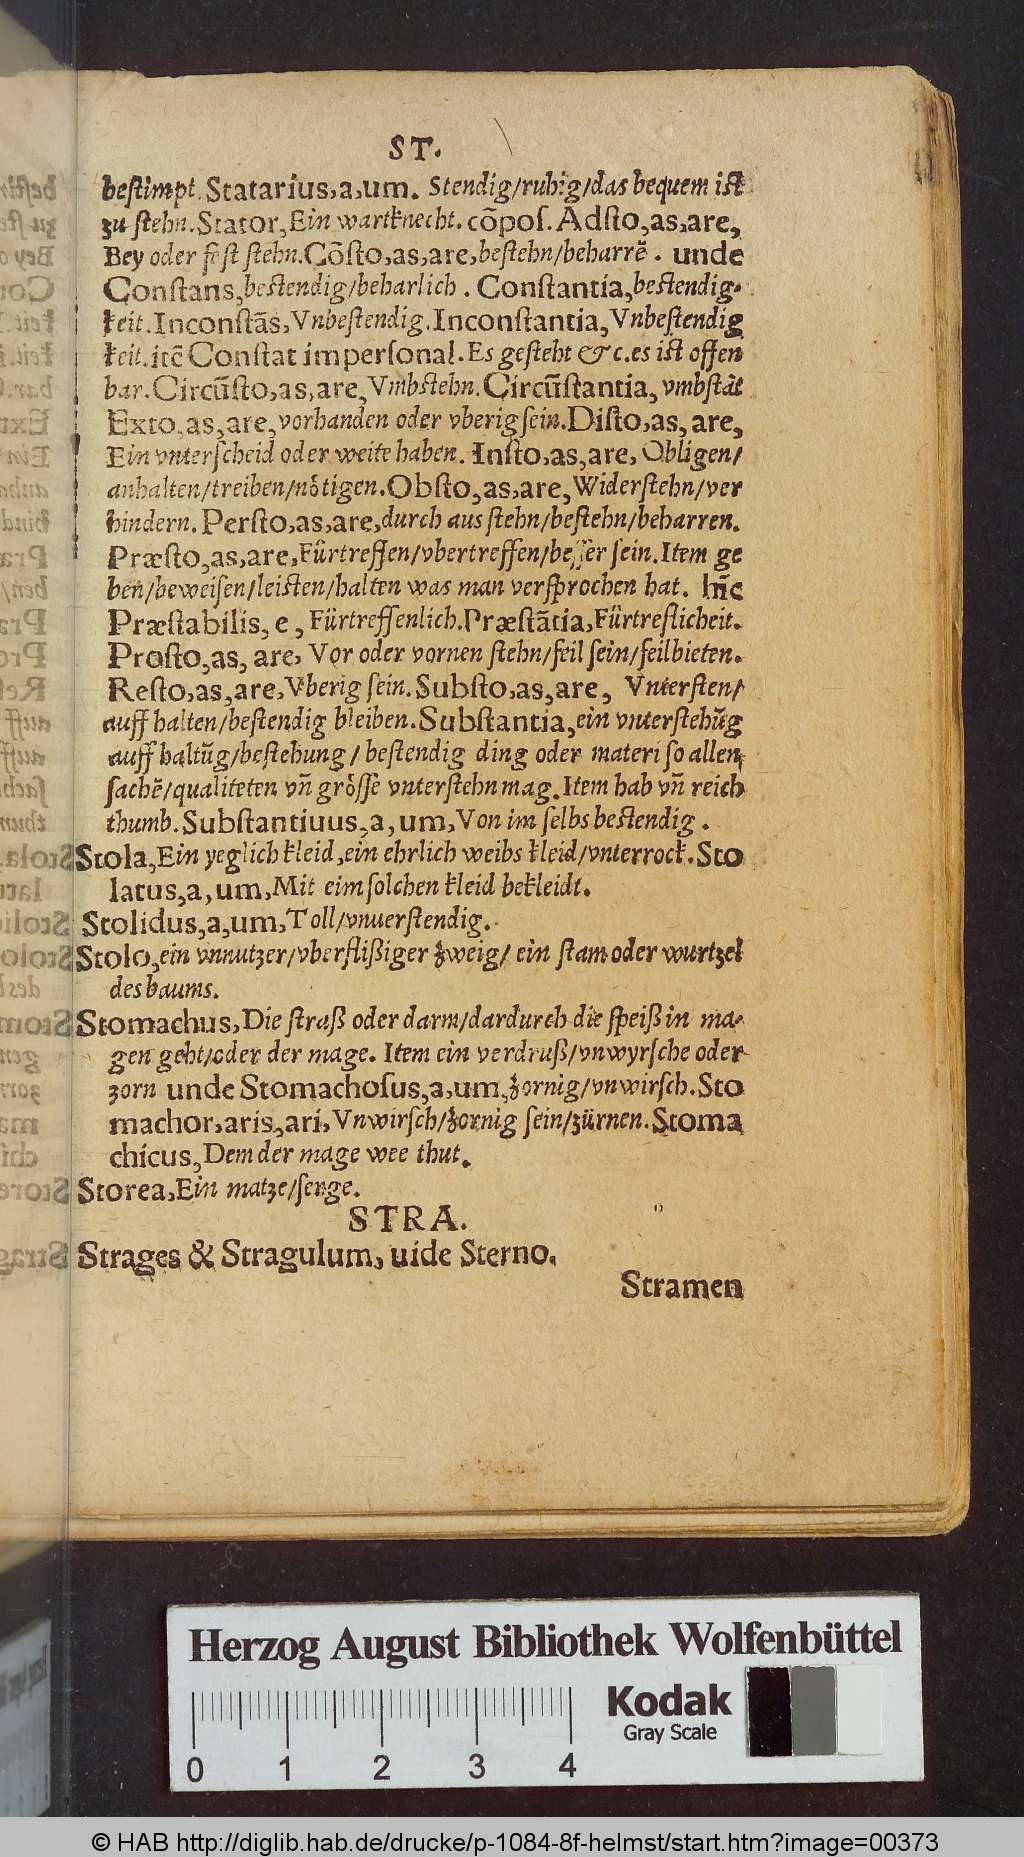 ST.
beſtimpt. Statarius,a,um. Stendig/ruhig/das bequem iſt
zu ſtehn. Stator, Ein wartknecht. cõpoſ. Adſto,as,are,
Bey oder feſt ſtehn. Cõſto,as,are, beſtehn/beharrẽ. unde
Conſtans, beſtendig/beharlich. Conſtantia, beſtendig-
keit. Inconſtãs, Vnbeſtendig. Inconſtantia, Vnbeſtendig
keit. itẽ Conſtat imperſonal. Es geſteht &c. es iſt offen
bar. Circũſto,as,are, Vmbſtehn. Circũſtantia, vmbſtãt
Exto,as,are, vorhanden oder vberig ſein. Diſto,as,are,
Ein vnterſcheid oder weite haben. Inſto,as,are, Obligen/
anhalten/treiben/nötigen. Obſto,as,are, Widerſtehn/ver
hindern. Perſto,as,are, durch aus ſtehn/beſtehn/beharren.
Præſto,as,are, Fürtreffen/vbertreffen/beſſer ſein. Item ge
ben/beweiſen/leiſten/halten was man verſprochen hat. hĩc
Præſtabilis, e, Fürtreffenlich. Præſtãtia, Fürtreflicheit.
Proſto,as, are, Vor oder vornen ſtehn/feil ſein/feilbieten.
Reſto,as,are, Vberig ſein. Subſto,as,are, Vnterſten/
auff halten/beſtendig bleiben. Subſtantia, ein vnterſtehũg
auff haltũg/beſtehung/ beſtendig ding oder materi ſo allen
ſachẽ/qualiteten vñ gröſſe vnterſtehn mag. Item hab vñ reich
thumb. Subſtantiuus,a, um, Von im ſelbs beſtendig.
Stola, Ein yeglich kleid, ein ehrlich weibs kleid/vnterrock. Sto
latus,a, um, Mit eim ſolchen kleid bekleidt.
Stolidus,a,um, Toll/vnuerſtendig.
Stolo, ein vnnutzer/vberflißiger zweig/ ein ſtam oder wurtzel
des baums.
Stomachus, Die ſtraß oder darm/dardurch die ſpeiß in ma-
gen geht/oder der mage. Item ein verdruß/vnwyrſche oder
zorn unde Stomachoſus,a,um, zornig/vnwirſch. Sto
machor,aris,ari, Vnwirſch/zornig ſein/zürnen. Stoma
chicus, Dem der mage wee thut.
Storea, Ein matze/ſenge.
STRA.
Strages & Stragulum, uide Sterno.
Stramen
Herzog August Bibliothek Wolfenbüttel
Kodak
Gray Scale
0 1 2 3 4
© HAB http://diglib.hab.de/drucke/p-1084-8f-helmst/start.htm?image=00373